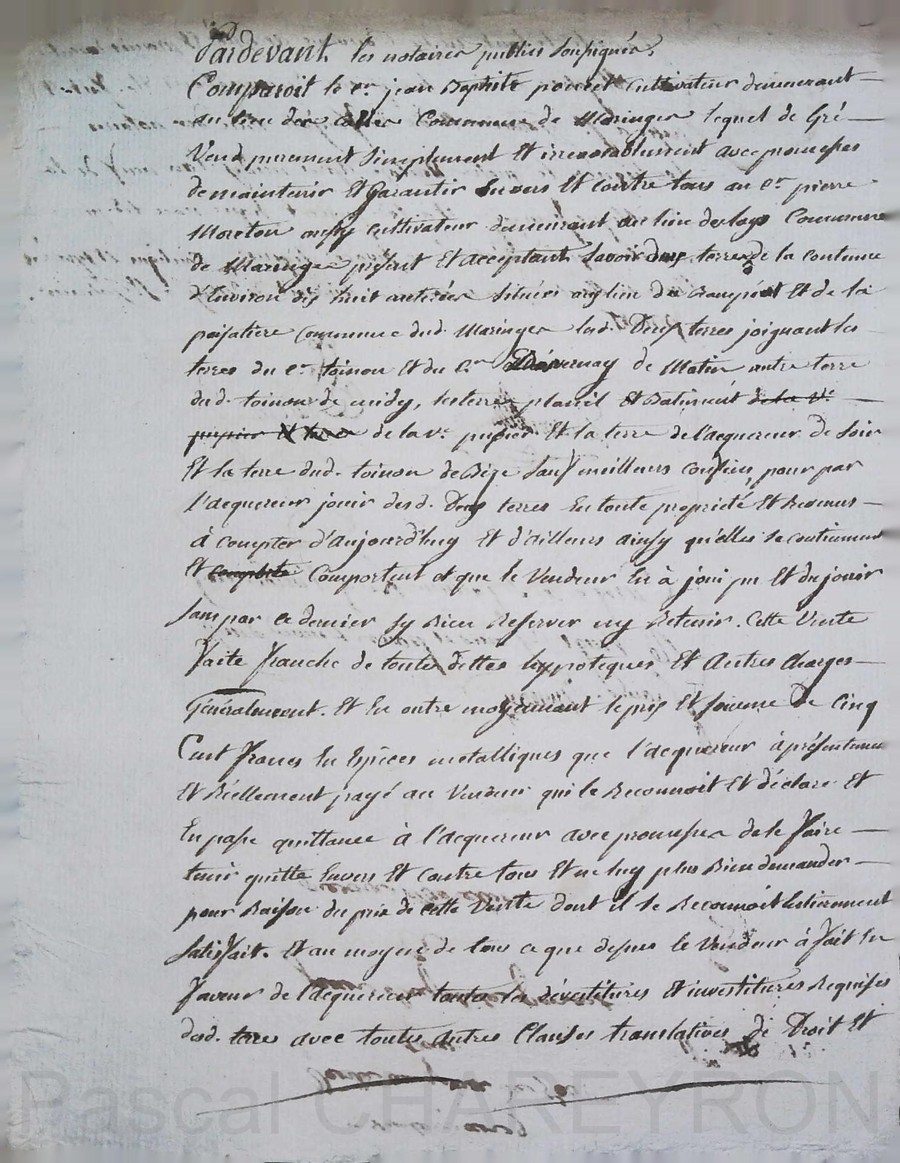 Pardevant les notaires publics soussignés,
Comparoit le cen jean Baptiste poncet Cultivateur demeurant
au lieu des Commune de Maringes lequel de Gré
Vend purement Simplement Et irrevocablement avec promesses
de maintenir Et Garantir Envers Et contre tous au cen pierre
Moreton aussy Cultivateur demeurant au lieu Commune
de Maringes présent Et acceptant Savoir deux terres de la contenue
d'Environ dix huit Situées au lieu du Et de la
Commune dud. Maringes lesd. Deux terres joignant les
terres du cen toinon Et du cen de Matin autre terre
dud. toinon de midy, les terres Et Batiment de la ve.
de la ve. pupier Et la terre de l'acquereur de Soir
Et la terre dud. toinon de Bize Sauf meilleurs Confins, pour par
l'acquereur jouir desd. Deux terres En toute propriété Et Revenus
à Compter d'Aujourd'huy Et d'ailleurs ainsy qu'elles se contiennent
Et Comportent et que le Vendeur En à joui pu Et du jouir
Sans par ce dernier sy Rien Reserver ny Retenir. Cette Vente
faite franche de toutes dettes hypoteques Et Autres charges
Généralement. Et En outre moyennant le prix Et somme De Cinq
Cent francs En Espèces metalliques que l'acquereur à présentement
Et Réellement payé au Vendeur qui le Reconnoit Et déclare Et
En passe quittance à l'acquereur avec promesses de le faire
tenir quitte Envers Et Contre tous Et ne luy plus Rien demander
pour Raison du prix de cette Vente dont il se Reconnoit Entierement
Satisfait. Et au moyen de tous ce que dessus le Vendeur à fait En
faveur de l'acquereur toutes les dévestitures Et investitures Requises
desd. terres avec toutes autres Clauses translatives de Droit Et
Pascal CHAREYRON